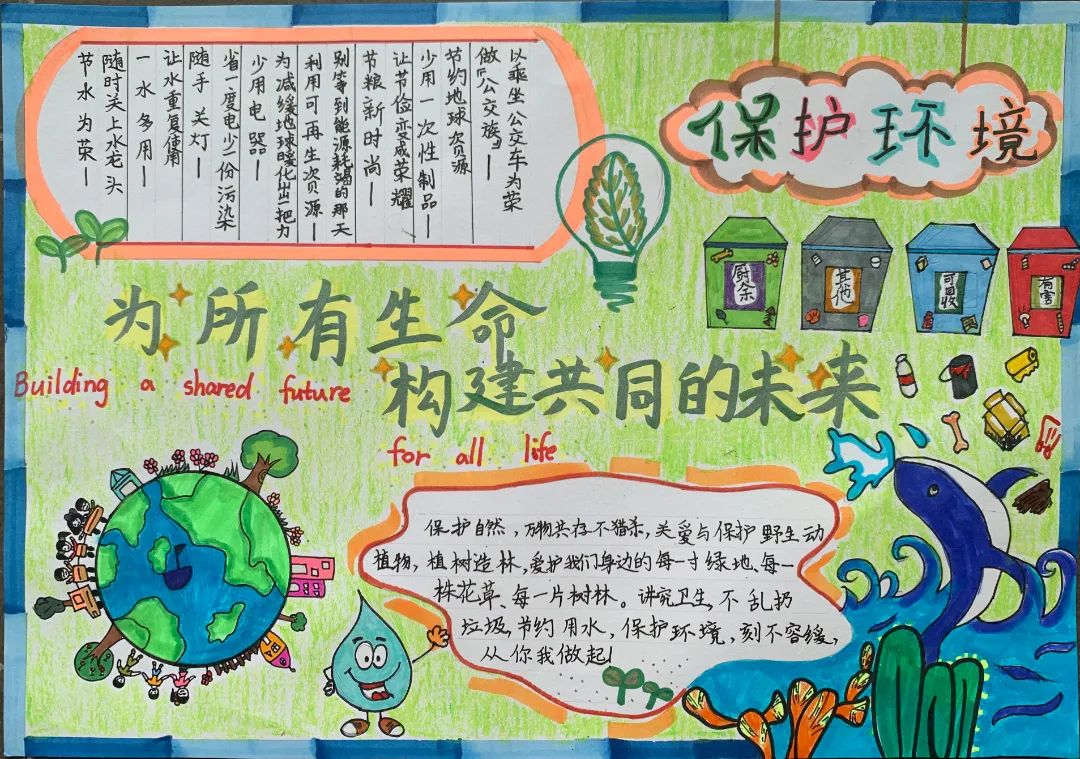 保护环境
节水为荣—
随时关上水龙头
一水多用—
让水重复使用
随手关灯—
省一度电少一份污染
少用电器—
为减缓地球暖化出一把力
利用可再生资源—
别等到能源耗竭的那天
节粮新时尚—
让节俭变成荣耀
少用一次性制品—
节约地球资源
做「公交族」—
以乘坐公交车为荣
厨余
其他
可回收
有害
为所有生命
构建共同的未来
Building a shared future
for all life
保护自然，万物共存不猎杀，关爱与保护野生动
植物，植树造林，爱护我们身边的每一寸绿地、每一
株花草、每一片树林。讲究卫生，不乱扔
垃圾，节约用水，保护环境，刻不容缓，
从你我做起！